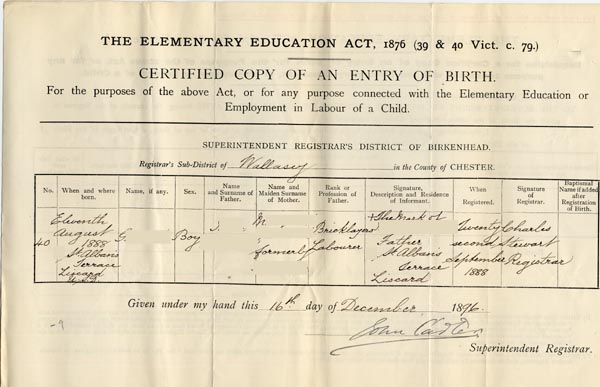 THE ELEMENTARY EDUCATION ACT, 1876 (39 & 40 Vict. c. 79.)
CERTIFIED COPY OF AN ENTRY OF BIRTH.
For the purposes of the above Act, or for any purpose connected with the Elementary Education or
Employment in Labour of a Child.
SUPERINTENDENT REGISTRAR'S DISTRICT OF BIRKENHEAD.
Registrar's Sub-District of Wallasey in the County of CHESTER.
No.
When and where
born.
Name, if any.
Sex.
Name
and Surname of
Father.
Name and
Maiden Surname
of Mother.
Rank or
Profession of
Father.
Signature,
Description and Residence
of Informant.
When
Registered.
Signature
of
Registrar.
Baptismal
Name if added
after
Registration
of Birth.
40
Eleventh
August
1888
St Albans
Terrace
Liscard
G.
Boy
M
formerly
Bricklayers
Labourer
The Mark of
Father
St Albans
Terrace
Liscard
Twenty
second
September
1888
Charles
Stewart
Registrar
Given under my hand this 16th day of December 1896.
John Carter
Superintendent Registrar.
-9